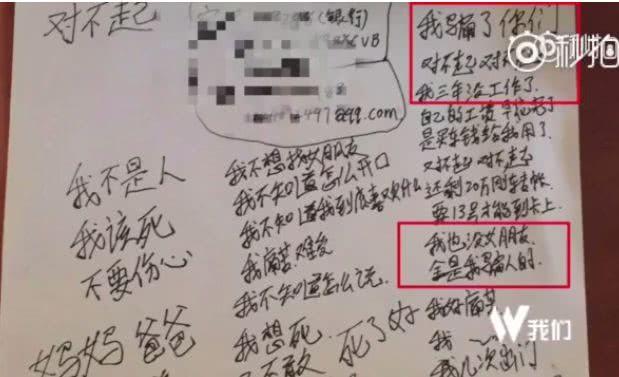 对不起
(银行)
497@qq.com
我不是人
我该死
不要伤心
妈妈 爸爸
我不想找女朋友
我不知道怎么开口
我不知道我到底喜欢什么
我痛苦难受
我不知道怎么说
我想死
不敢 死了好
我骗了你们
对不起 对
我三年没工作了
自己的工资早
是买车钱给我用了
对不起 对不起
还剩20万
要13号才能到卡上
我也没女朋友
全是我骗人的
我好痛苦
我
我几次出门
秒拍
我们